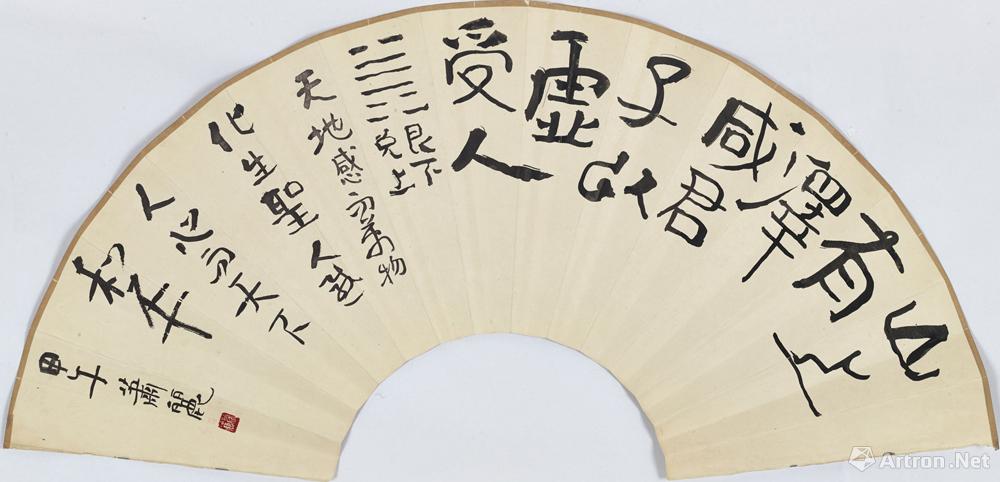 山上
有
澤
咸君
子以
虛
受人
䷞
艮下
兑上
天地感而萬物
化生聖人感
人心而天下
和平
甲午 蕭麗
Artron.Net